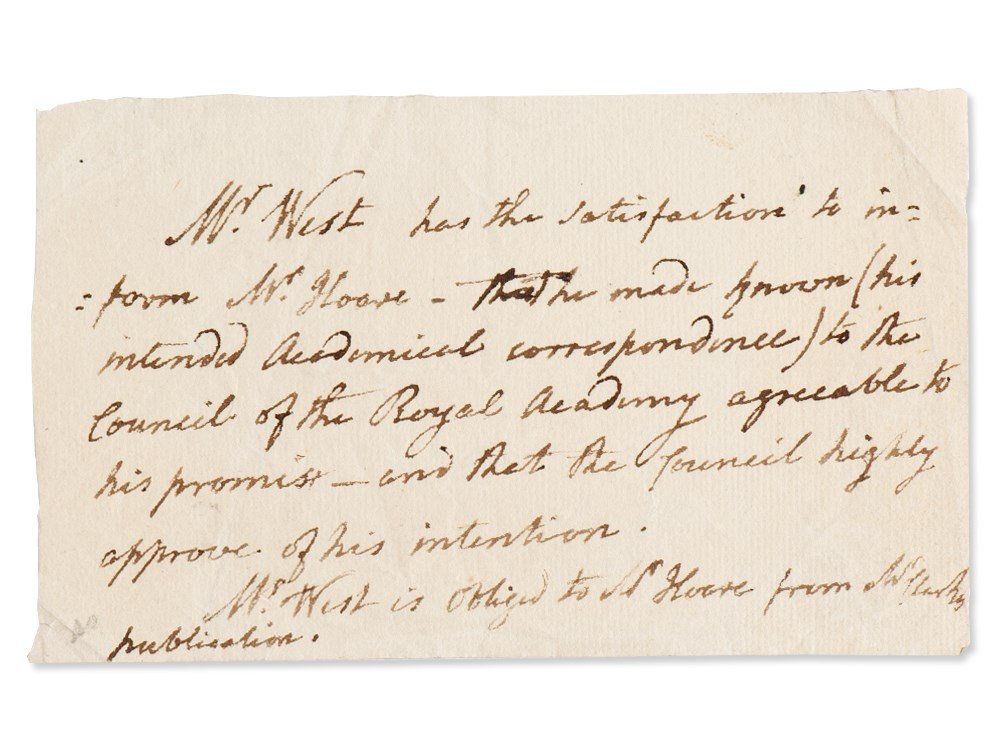 Mr. West has the satisfaction to in=
=form Mr. Hoare – that he made known (his
intended Academical correspondence) to the
Council of the Royal Academy agreeable to
his promise – and that the Council highly
approve of his intention.
Mr. West is obliged to Mr Hoare from Mr
publication.